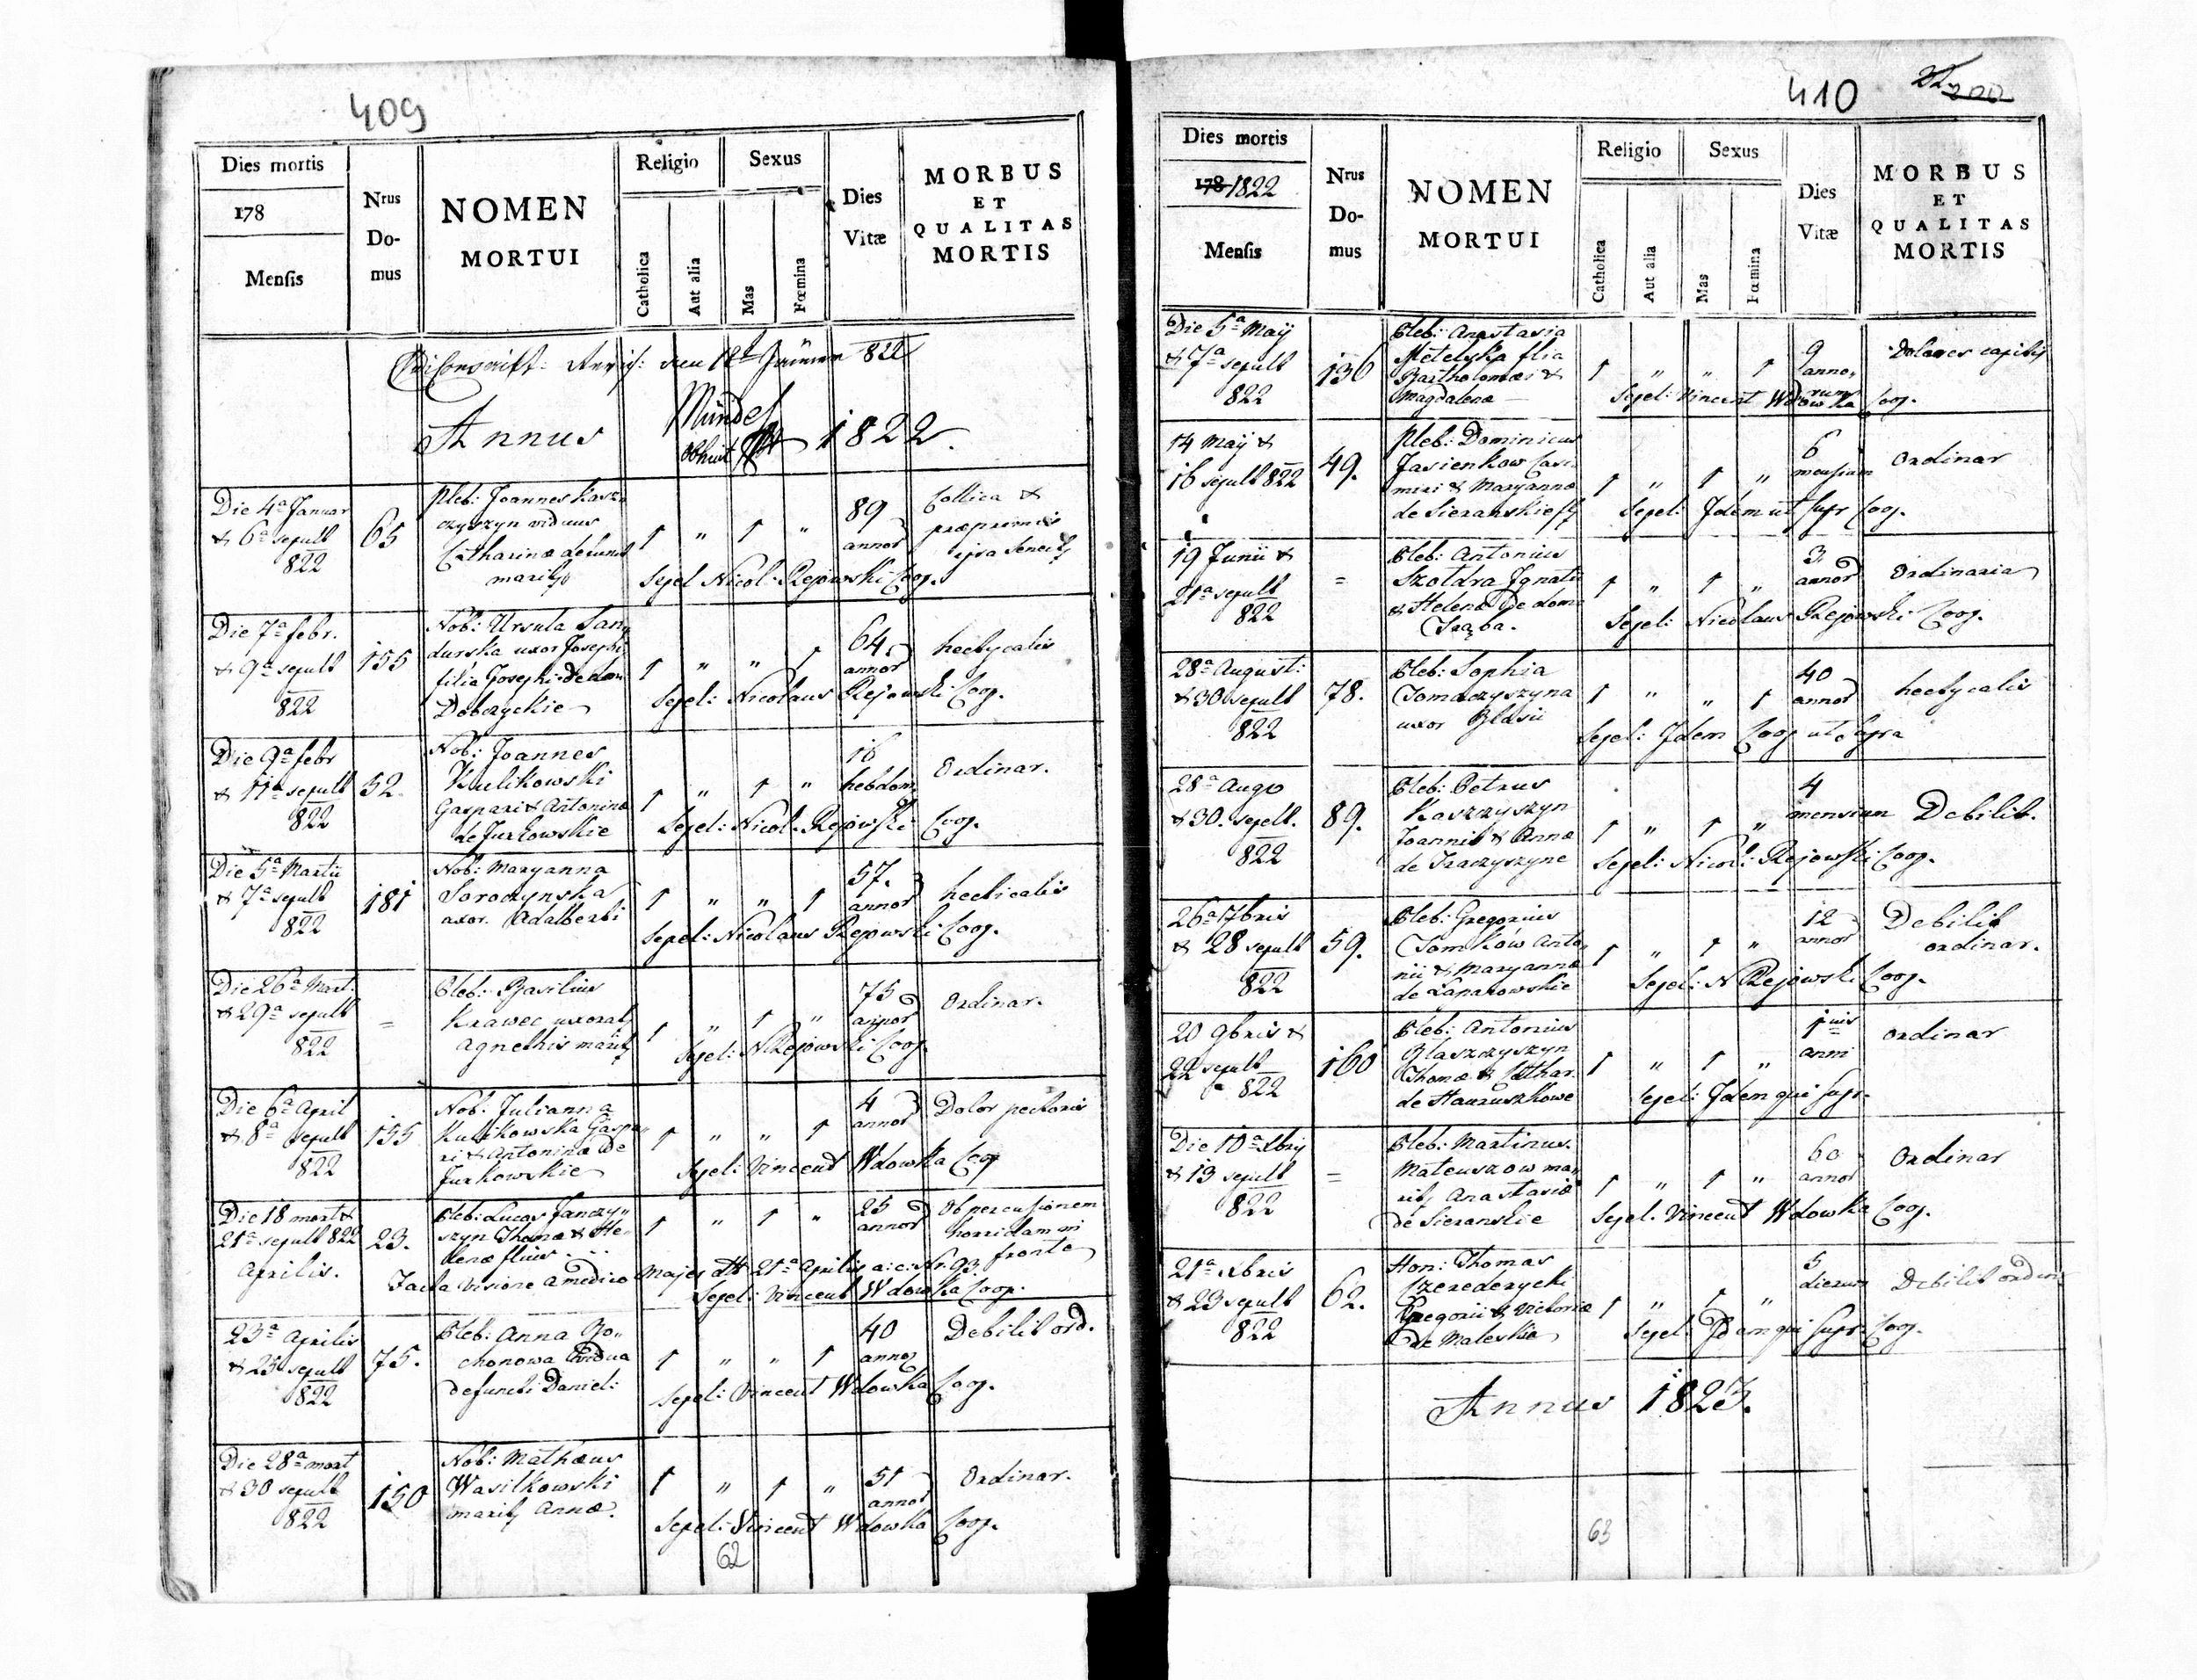 409
Dies mortis
178
Mensis
Nrus
Do-
mus
NOMEN
MORTUI
Religio
Catholica
Aut alia
Sexus
Mas
Fœmina
Dies
Vitæ
MORBUS
ET
QUALITAS
MORTIS
Annus 1822.
Die 4a Januar
& 6a sepult
822
65
Pleb: Joannes Kasz
czyszyn viduus
Catharinæ defunct
89
annor
Collica &
Sepel Nicol: Rejowski Coop.
Die 7a febr.
& 9a sepult
822
155
Nob: Ursula San
durska uxor Josephi
filia Josephi de dom
Dobczyckie
64
annor
hectycalis
Sepel: Nicolaus Rejowski Coop.
Die 9a febr
& 11a sepult
822
52.
Nob: Joannes
Kulikowski
Gaspari & Antoninæ
de Jurkowskie
16
hebdom
Ordinar.
Sepel: Nicol. Rejowski Coop.
Die 5a Martii
& 7a sepult
822
181
Nob: Maryanna
Soroczynska
uxor. Adalberti
57.
annor
hecticalis
Sepel: Nicolaus Rejowski Coop.
Die 26a Mart:
& 29a sepult
822
=
Pleb: Basilius
Krawec uxorat
Agnethis marit
75
annor
Ordinar.
Sepel: N Rejowski Coop.
Die 6a April
& 8a sepult
822
155
Nob. Julianna
Kulikowska Gaspa
ri & Antoninæ de
Jurkowskie
4
annor
Dolor pectoris
Sepel: Vincent Wdowka Coop
Die 18 mort &
21a sepult 822
Aprilis.
23.
Pleb: Lucas Janczy
szyn Thomæ & He
lenæ filius
25
annor
Ob percusionem
horridam in
fronte
Facta Visione a medico 21a Aprilis a: c: Nr. 93.
Sepel: Vincent Wdowka Coop.
23a Aprilis
& 25 sepult
822
75.
Pleb: Anna Bo
chonowa Vidua
defuncti Daniel:
40
annor
Debilit ord.
Sepel: Vincent Wdowka Coop.
Die 28a mort
& 30 sepult
822
150
Nob: Mathæus
Wasilkowski
marit Annæ.
51
annor
Ordinar.
Sepel: Vincent Wdowka Coop.
62
410
200
Dies mortis
178 1822
Mensis
Nrus
Do-
mus
NOMEN
MORTUI
Religio
Catholica
Aut alia
Sexus
Mas
Fœmina
Dies
Vitæ
MORBUS
ET
QUALITAS
MORTIS
Die 5a Maij
& 7a sepult
822
136
Pleb: Anastasia
Metelska filia
Bartholomæi &
Magdalenæ
9
anno
rum
Dolores capitis
Sepel: Vincent Wdowka Coop.
14 Maij &
16 sepult 822
49.
Pleb: Dominicus
Jasienkow Casi
miri & Maryannæ
de Sieranskie
6
mensium
Ordinar
Sepel: Idem ut supr Coop.
19 Junii &
21a sepult
822
=
Pleb: Antonius
Szoldra Ignatii
& Helenæ de dom
Trąba.
3
annor
Ordinaria
Sepel: Nicolaus Rejowski Coop.
28a August:
& 30 sepult
822
78.
Pleb: Sophia
Tomaczyszyna
uxor Blasii
40
annor
hectycalis
Sepel: Idem Coop ut supra
28a Augo
& 30. sepelt.
822
89.
Pleb: Petrus
Kaszczyszyn
Joannis & Annæ
de Traczyszyne
4
mensium
Debilit.
Sepel: Nicol: Rejowski Coop.
26a 7bris
& 28 sepult
822
59.
Pleb: Gregorius
Tomków Anto
nii & Maryannæ
de Laparowskie
12
annor
Debilit
ordinar.
Sepel: N Rejowski Coop.
20 9bris &
22 sepult
822
160
Pleb: Antonius
Blaszczyszyn
Thomæ & Cathar.
de Hauruszkowe
1
anni
ordinar
Sepel: Idem qui supr.
Die 10a Xbrij
& 13 sepult
822
=
Pleb: Martinus
Mateuszow ma
rit Anastasiæ
de Sieranskie
60
annor
Ordinar
Sepel. Vincent Wdowka Coop.
21a Xbris
& 23 sepult
822
62.
Hon: Thomas
Czeredeczki
Gregorii & Victoriæ
de Maleskie
5
dierum
Debilit ordin
Sepel: Idem qui supr: Coop.
Annus 1823.
63